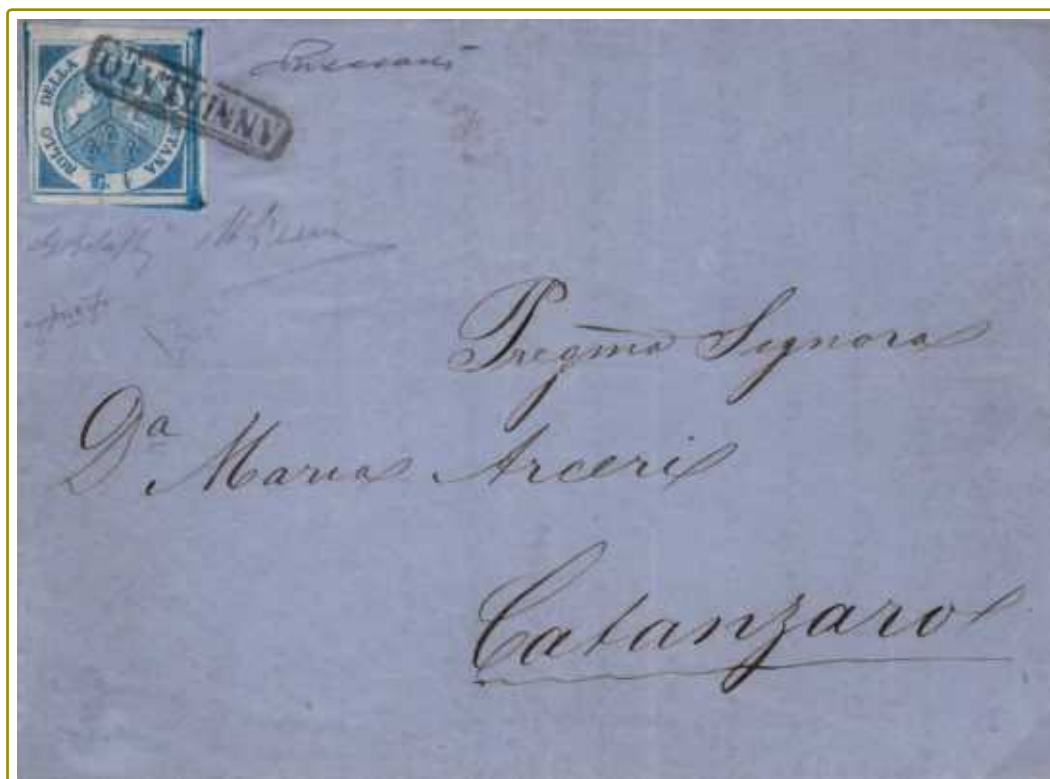 BOLLO DELLA TANA
ANNULLATO
Pregma Signora
Da. Maria Arceri
Catanzaro